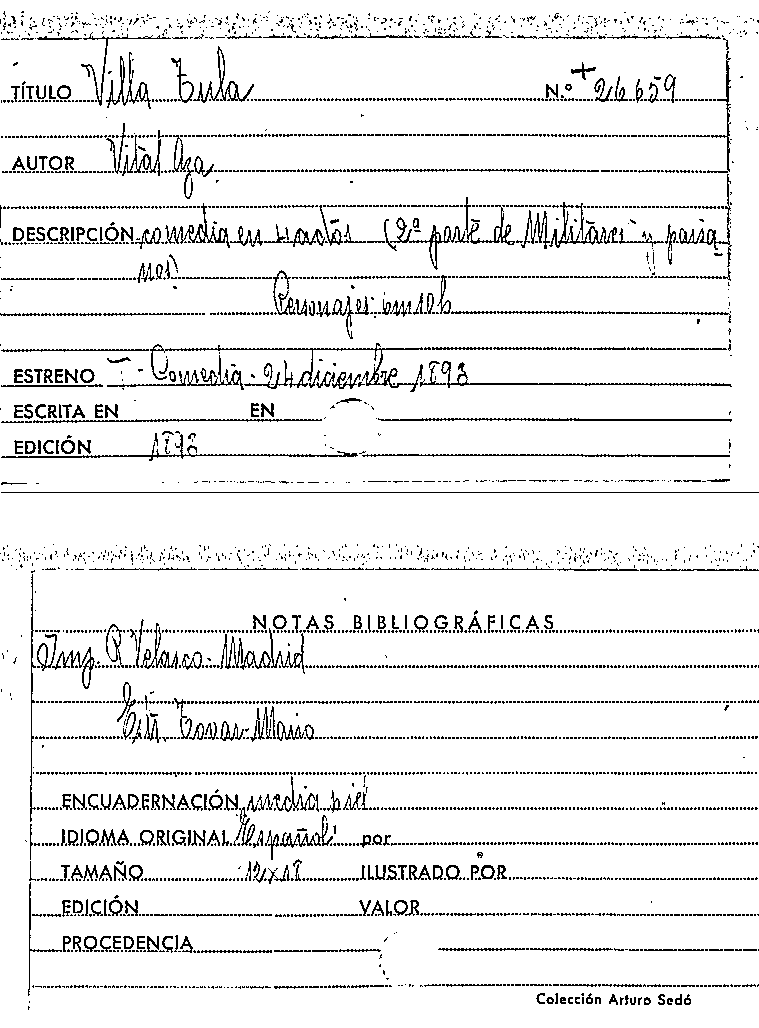 TÍTULO Villa Tula N.º + 26659
AUTOR Vital Aza
DESCRIPCIÓN comedia en 4 actos (2ª parte de Militares y paisa
nos)
Personajes: 6m 10h
ESTRENO T - Comedia - 24 diciembre 1893
ESCRITA EN EN
EDICIÓN 1893
NOTAS BIBLIOGRÁFICAS
Imp. R Velasco - Madrid
Tovar - Mario
ENCUADERNACIÓN media piel
IDIOMA ORIGINAL Español por
TAMAÑO 12x18 ILUSTRADO POR
EDICIÓN VALOR
PROCEDENCIA
Colección Arturo Sedó